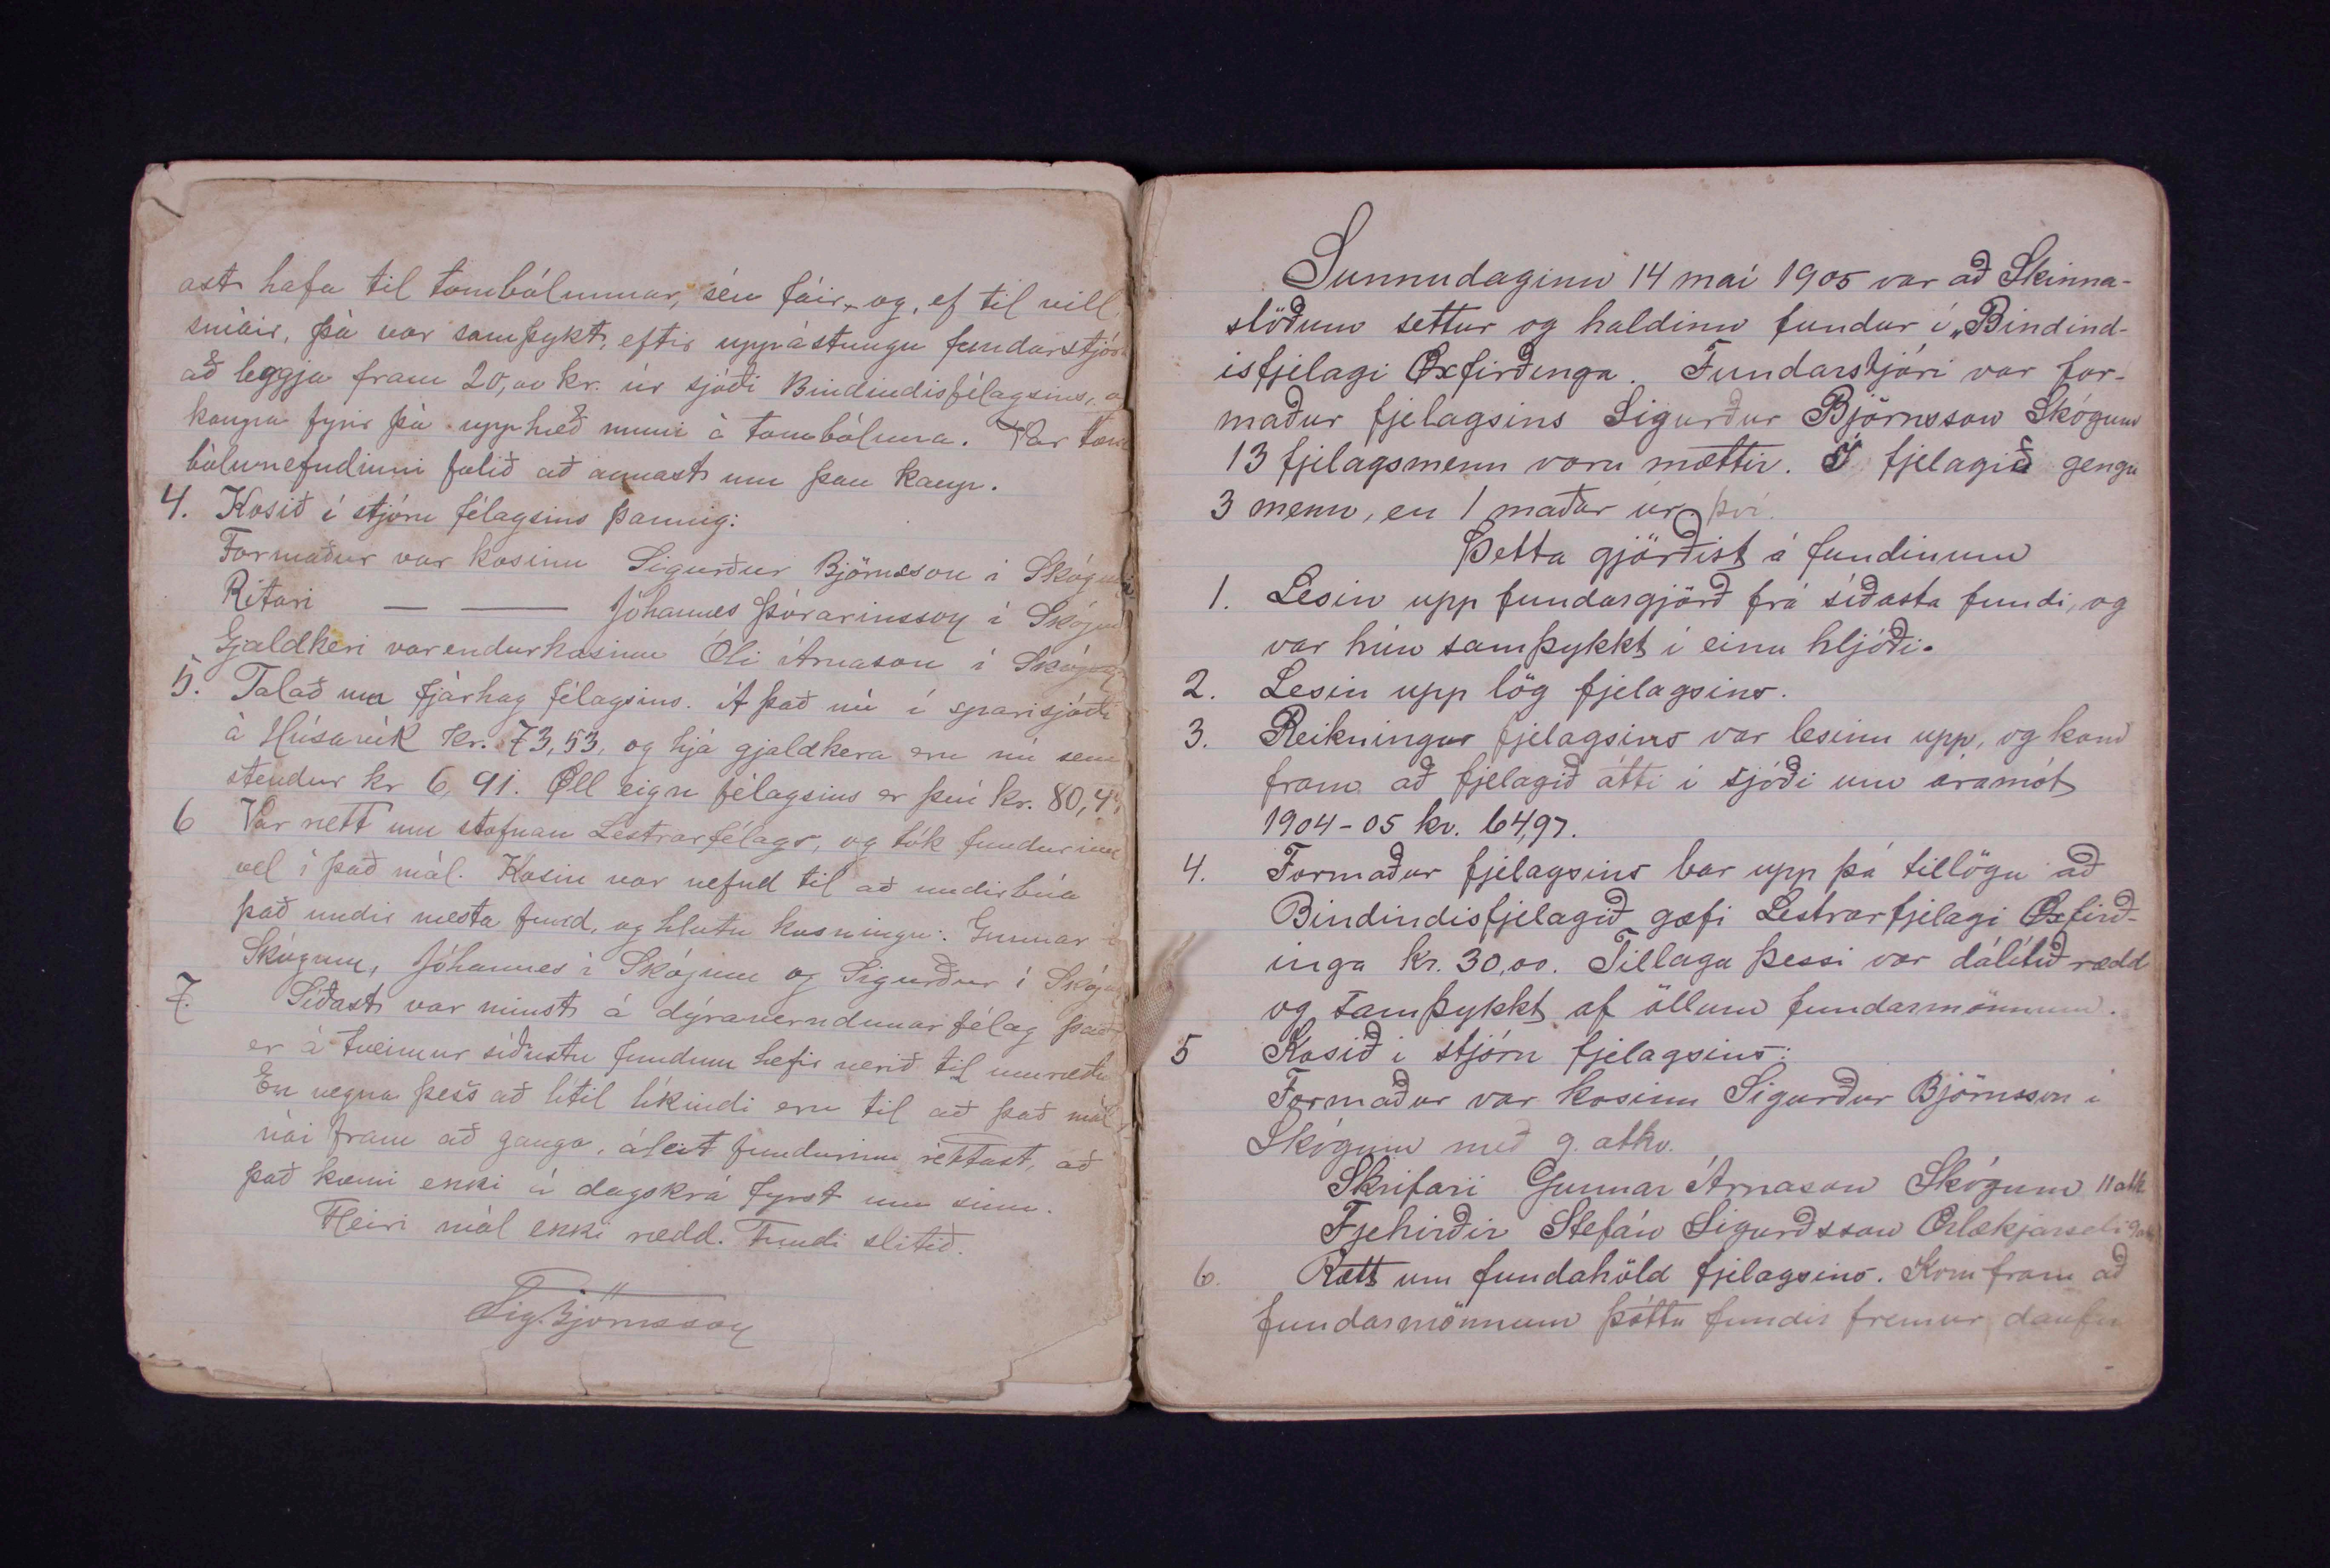 ast hafa til tombólunnar, séu fáir, og, ef til vill,
smáir, þá var samþykt, eftir uppástungu fundarstjór
að leggja fram 20,00 kr. úr sjóði Bindindisfélagsins, o
kaupa fyrir þá upphæð muni á tombóluna. Var tom
bólunefndinni falið að annast um þau kaup.
4. Kosið í stjórn félagsins þannig:
Formaður var kosinn Sigurður Björnsson í Skógum
Ritari — — Jóhannes Þórarinsson í Skógum
Gjaldkeri var endurkosinn Óli Árnason í Skógum
5. Talað um fjárhag félagsins. Á það nú í sparisjóði
á Húsavík kr. 73,53, og hjá gjaldkera eru nú sem
stendur kr 6,91. Öll eign félagsins er því kr. 80,44
6 Var rætt um stofnan Lestrarfélags, og tók fundurinn
vel í það mál. Kosin var nefnd til að undirbúa
það undir næsta fund, og hlutu kosningu: Gunnar í
Skógum, Jóhannes í Skógum og Sigurður í Skógum
7. Síðast var minst á dýraverndunarfélag það
er á tveimur síðustu fundum hefir verið til umræðu
En vegna þess að lítil líkindi eru til að það mál
nái fram að ganga, áleit fundurinn réttast, að
það kæmi ekki á dagskrá fyrst um sinn.
Fleiri mál ekki rædd. Fundi slitið.
Sig. Björnsson
Sunnudaginn 14 maí 1905 var að Skinna-
stöðum settur og haldinn fundur í „Bindind-
isfjelagi Öxfirðinga. Fundarstjóri var for-
maður fjelagsins Sigurður Björnsson Skógum
13 fjelagsmenn voru mættir. Í fjelagið gengu
3 menn, en 1 maður úr því.
Þetta gjörðist á fundinum
1. Lesin upp fundargjörð frá síðasta fundi, og
var hún samþykkt í einu hljóði.
2. Lesin upp lög fjelagsins.
3. Reikningur fjelagsins var lesinn upp, og kom
fram að fjelagið átti í sjóði um áramót
1904-05 kr. 64,97.
4. Formaður fjelagsins bar upp þá tillögu að
Bindindisfjelagið gæfi Lestrarfjelagi Öxfirð-
inga kr. 30,00. Tillaga þessi var dálítið rædd
og samþykkt af öllum fundarmönnum.
5 Kosið í stjórn fjelagsins:
Formaður var kosinn Sigurður Björnsson í
Skógum með 9. atkv.
Skrifari Gunnar Árnason Skógum 11 atk
Fjehirðir Stefán Sigurðsson Ærlækjarseli 9 atk
6. Rætt um fundahöld fjelagsins. Kom fram að
fundarmönnum þóttu fundir fremur daufir